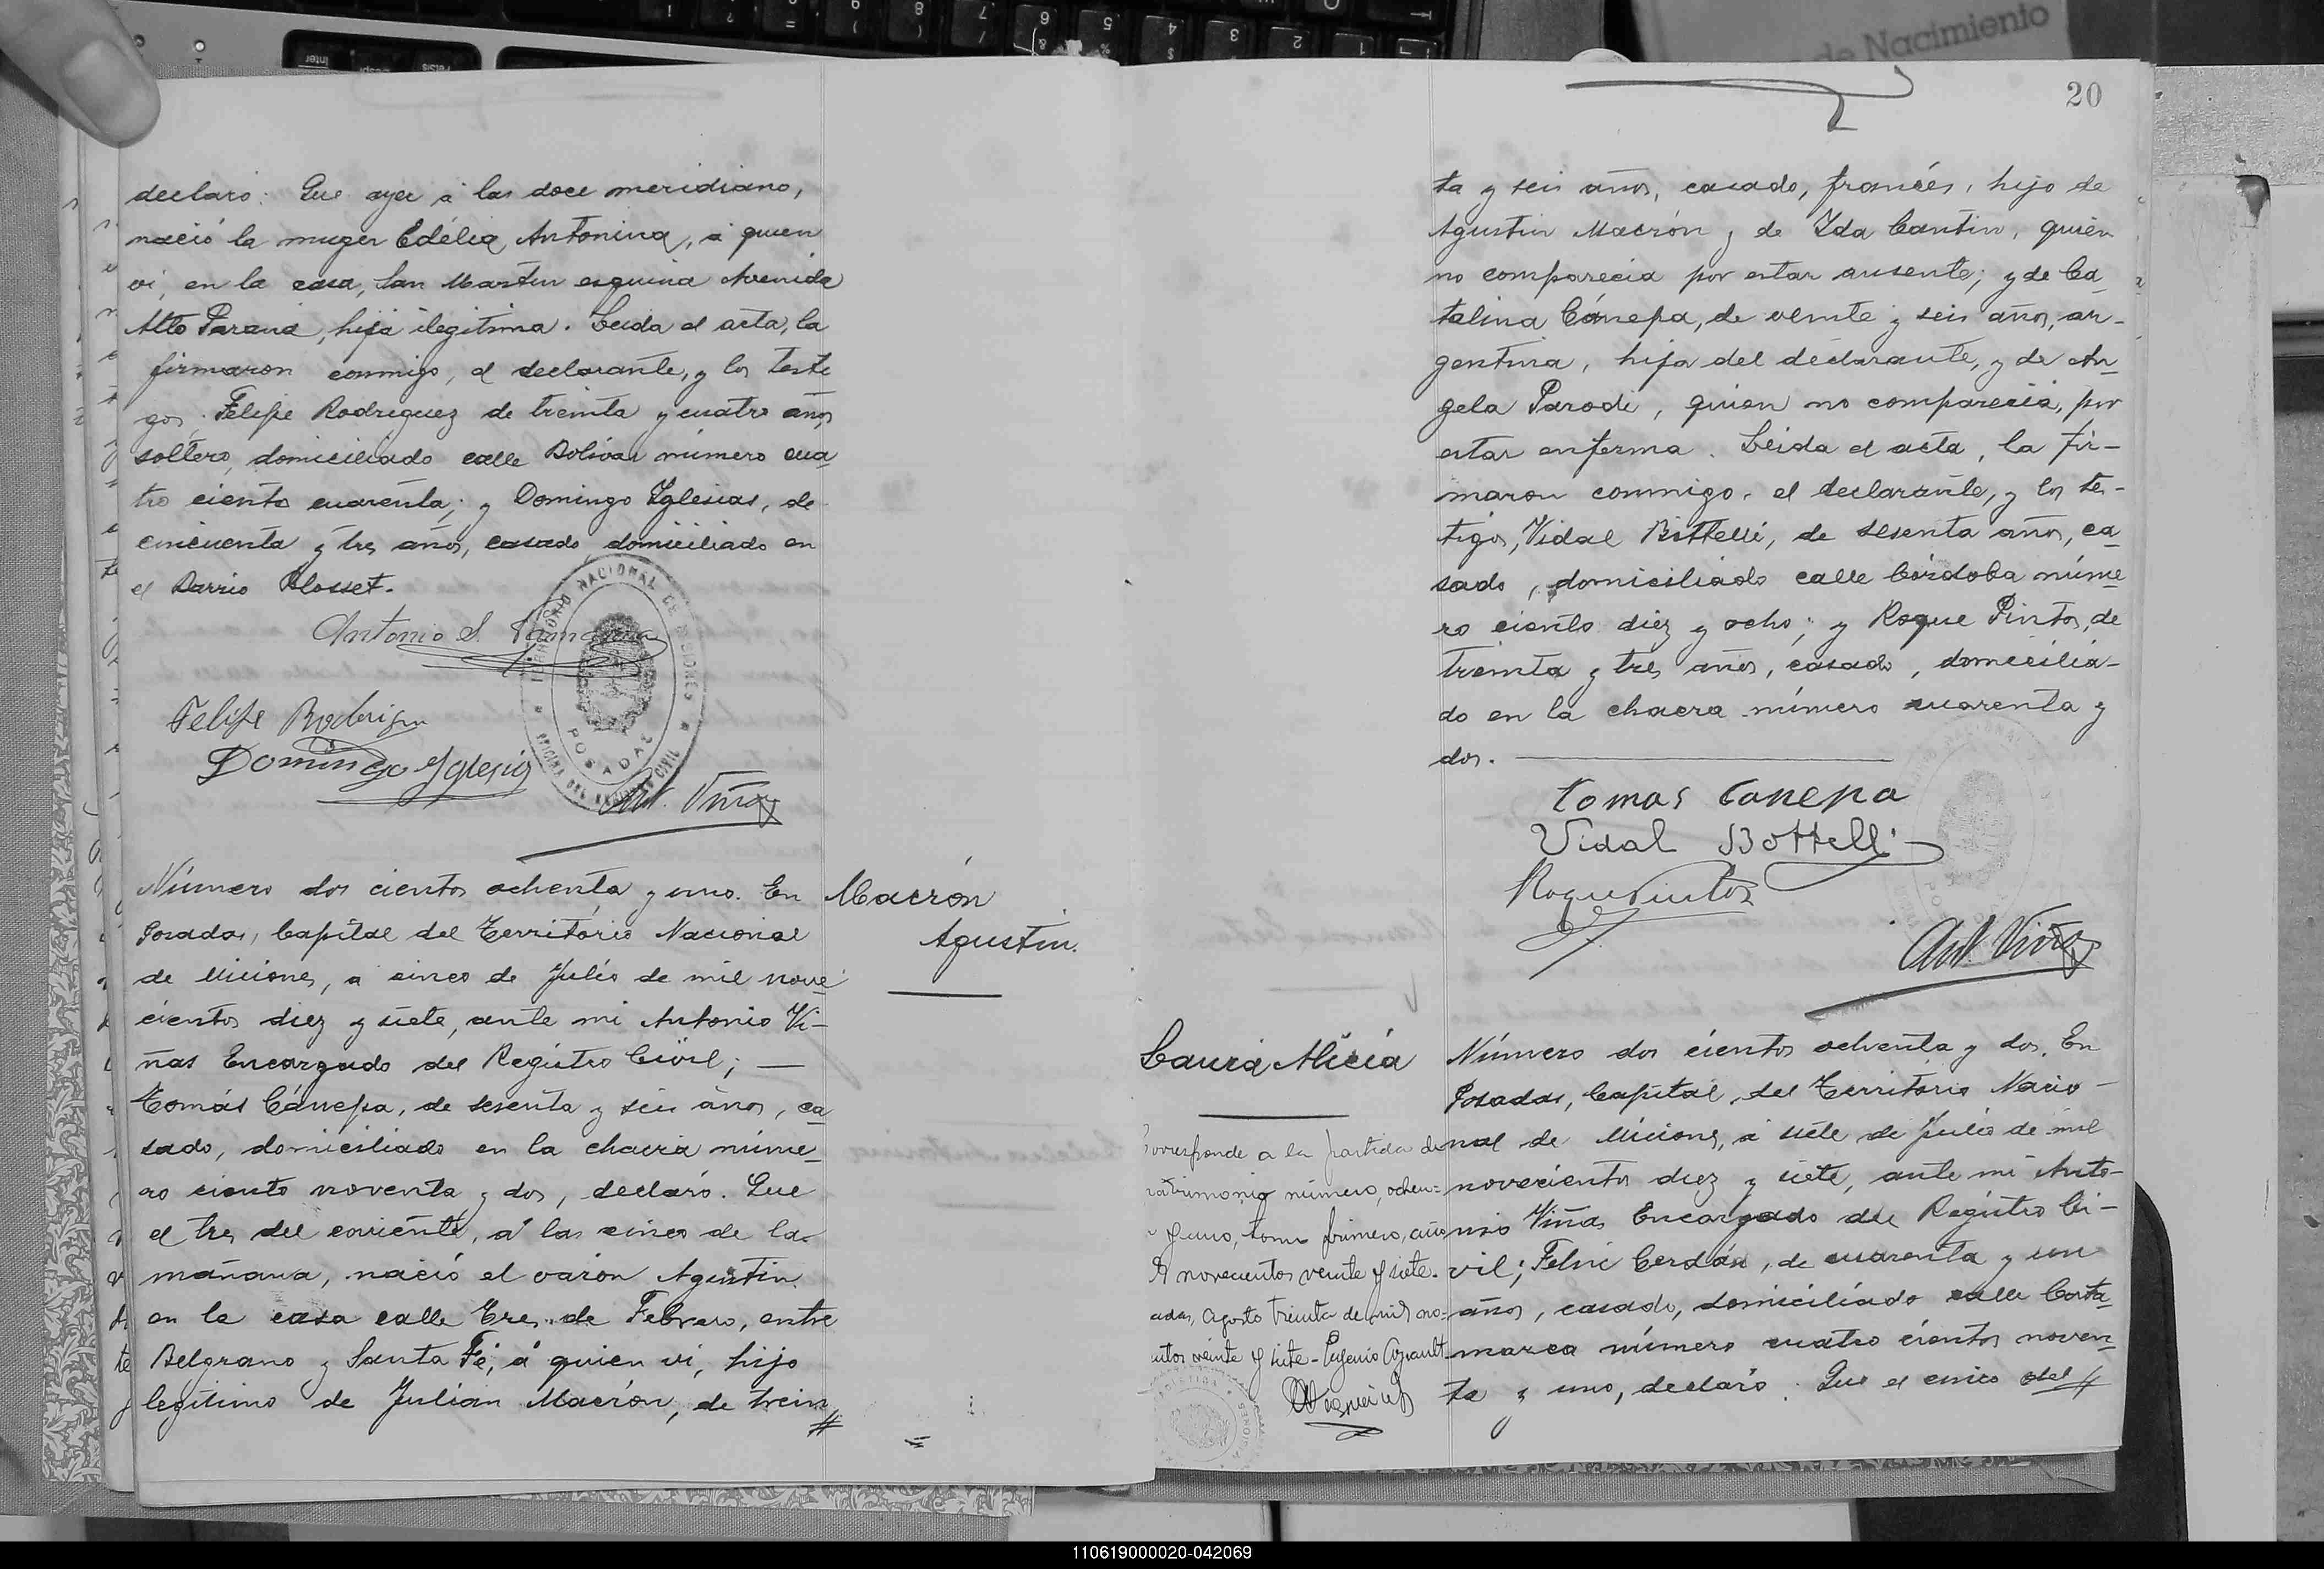 de Nacimiento
declaro: Que ayer á las doce meridiano,
nació la muger Edélia Antonina, á quien
vi, en la casa, San Martin esquina Avenida
Alto Paraná, hija ilegitima. Leida el acta, la
firmaron conmigo, el declarante, y los testi
gos, Felipe Rodriguez de treinta y cuatro años
soltero, domiciliado calle Bolivar número cua
tro ciento cuarenta; y Domingo Yglesias, de
cincuenta y tres años, casado, domiciliado en
el Barrio Blosset.
Antonio S.
Felipe Rodrigu
Domingo Yglesias
TERRITORIO NACIONAL DE MISIONES
POSADAS
OFICINA DEL REGISTRO CIVIL
Ant. Viñas
Macrón
Agustin.
Número dos cientos ochenta y uno. En
Posadas, Capital del Territorio Nacional
de Misiones, a cinco de Julio de mil nove
cientos diez y siete, ante mi Antonio Vi-
ñas Encargado del Registro Civil; —
Tomás Cánepa, de sesenta y seis años, ca
sado, domiciliado en la chacra núme
ro ciento noventa y dos, declaró. Que
el tres del corriente, á las cinco de la
mañana, nació el varón Agustin
en la casa calle Tres de Febrero, entre
Belgrano y Santa Fé, á quien vi, hijo
legitimo de Julian Macrón, de trein
20
ta y seis años, casado, francés, hijo de
Agustin Macrón y de Ida Cantin, quien
no comparecia por estar ausente; y de Ca
talina Cánepa, de veinte y seis años, ar-
gentina, hija del declarante, y de An
gela Parodi, quien no comparecia, por
estar enferma. Leida el acta, la fir-
maron conmigo, el declarante, y los tes-
tigos, Vidal Bottelli, de sesenta años, ca
sado, domiciliado calle Córdoba núme
ro ciento diez y ocho; y Roque Pintos, de
treinta y tres años, casado, domicilia-
do en la chacra número cuarenta y
dos.
Tomas Canepa
Vidal Bottelli
Roque Pintos
Ant Viñas
Laura Alicia
Corresponde a la partida de
matrimonio número, ochen=
y uno, tomo primero, año
novecientos veinte y siete.
adas, Agosto treinta de mil no=
ntos veinte y siete - Eugenio
Número dos cientos ochenta y dos. En
Posadas, Capital, del Territorio Nacio-
nal de Misiones, á siete de Julio de mil
novecientos diez y siete, ante mi Anto-
nio Viñas Encargado del Registro Ci-
vil; Felix Cerdán, de cuarenta y un
años, casado, domiciliado calle Cata-
marca número cuatro cientos noven
ta y uno, declaró: Que el cinco del
110619000020-042069